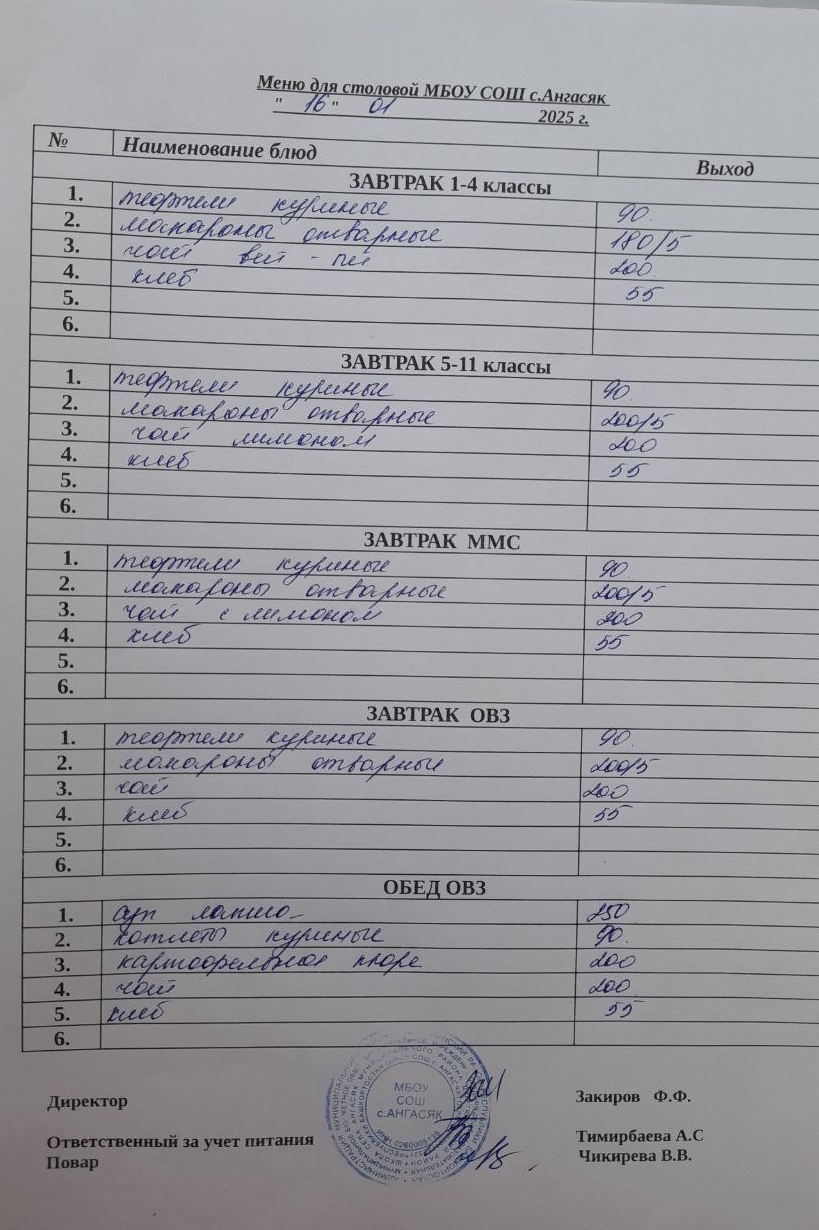 Меню для столовой МБОУ СОШ с.Ангасяк
" 16 " 01 2025 г.
№ Наименование блюд Выход
ЗАВТРАК 1-4 классы
1. тефтели куриные 90.
2. макароны отварные 180/5
3. чай вей - пей 200
4. хлеб 55
5.
6.
ЗАВТРАК 5-11 классы
1. тефтели куриные 90.
2. макароны отварные 200/5
3. чай лимоном 200
4. хлеб 55
5.
6.
ЗАВТРАК ММС
1. тефтели куриные 90.
2. макароны отварные 200/5
3. чай с лимоном 200
4. хлеб 55
5.
6.
ЗАВТРАК ОВЗ
1. тефтели куриные 90.
2. макароны отварные 200/5
3. чай 200
4. хлеб 55
5.
6.
ОБЕД ОВЗ
1. суп лапша 250
2. котлеты куриные 90.
3. картофельное пюре 200
4. чай 200
5. хлеб 55
6.
МБОУ
СОШ
с.АНГАСЯК
Директор Закиров Ф.Ф.
Ответственный за учет питания Тимирбаева А.С
Повар Чикирева В.В.